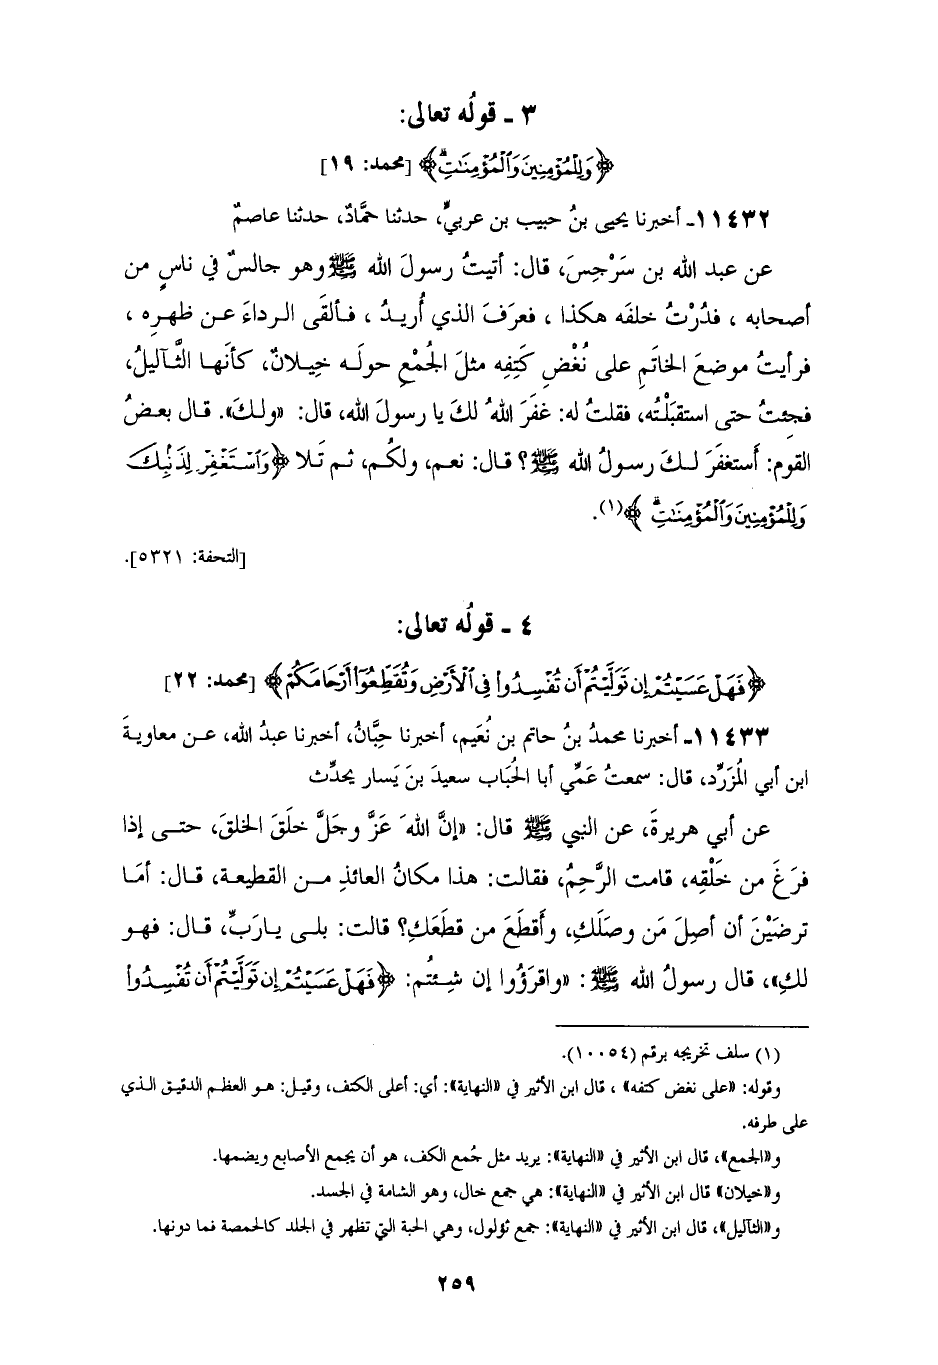 ٣ ـ قولُه تعالى:
﴿وَلِلْمُؤْمِنِينَ وَٱلْمُؤْمِنَٰتِۗ﴾ [محمد: ١٩]
١١٤٣٢ـ أخبرنا يحيى بنُ حبيب بن عربيٍّ، حدثنا حمَّادٌ، حدثنا عاصمٌ
عن عبد الله بن سَرْجِسَ، قال: أتيتُ رسولَ الله ﷺ وهو جالسٌ في ناسٍ من
أصحابه ، فدُرْتُ خلفَه هكذا ، فعرَفَ الذي أُريدُ ، فألقَى الرداءَ عن ظهرِه ،
فرأيتُ موضعَ الخاتَمِ على نُغْضِ كَتِفِه مثلَ الجُمْعِ حولَه خِيلانٌ، كأنها الثَّآليلُ،
فجئتُ حتى استقبَلْتُه، فقلتُ له: غفَرَ اللهُ لكَ يا رسولَ الله، قال: «ولكَ». قال بعضُ
القومِ: أَستغفَرَ لكَ رسولُ الله ﷺ؟ قال: نعم، ولكُم، ثم تَلا ﴿وَٱسْتَغْفِرْ لِذَنۢبِكَ
وَلِلْمُؤْمِنِينَ وَٱلْمُؤْمِنَٰتِۗ ﴾(١).
[التحفة: ٥٣٢١].
٤ ـ قولُه تعالى:
﴿فَهَلْ عَسَيْتُمْ إِن تَوَلَّيْتُمْ أَن تُفْسِدُوا۟ فِى ٱلْأَرْضِ وَتُقَطِّعُوٓا۟ أَرْحَامَكُمْ﴾ [محمد: ٢٢]
١١٤٣٣ـ أخبرنا محمدُ بنُ حاتم بن نُعَيم، أخبرنا حِبَّانُ، أخبرنا عبدُ الله، عن معاويةَ
ابن أبي المُزَرِّد، قال: سمعتُ عَمِّي أبا الحُبَاب سعيدَ بنَ يَسار يحدِّث
عن أبي هريرةَ، عن النبي ﷺ قال: «إنَّ اللهَ عَزَّ وجَلَّ خلَقَ الخلقَ، حتى إذا
فرَغَ من خَلْقِه، قامت الرَّحِمُ، فقالت: هذا مكانُ العائذِ من القطيعة، قال: أمَا
ترضَيْنَ أن أصِلَ مَن وصَلَكِ، وأَقطَعَ من قطَعَكِ؟ قالت: بلى ياربِّ، قال: فهو
لكِ»، قال رسولُ الله ﷺ: «واقرَؤُوا إن شِئتُم: ﴿فَهَلْ عَسَيْتُمْ إِن تَوَلَّيْتُمْ أَن تُفْسِدُوا۟
(١) سلف تخريجه برقم (١٠٠٥٤).
وقوله: «على نغض كتفه» ، قال ابن الأثير في «النهاية»: أي: أعلى الكتف، وقيل: هو العظم الدقيق الذي
على طرفه.
و«الجمع»، قال ابن الأثير في «النهاية»: يريد مثل جُمع الكف، هو أن يجمع الأصابع ويضمها.
و«خيلان» قال ابن الأثير في «النهاية»: هي جمع خال، وهو الشامة في الجسد.
و«الثآليل»، قال ابن الأثير في «النهاية»: جمع ثؤلول، وهي الحبة التي تظهر في الجلد كالحمصة فما دونها.
٢٥٩